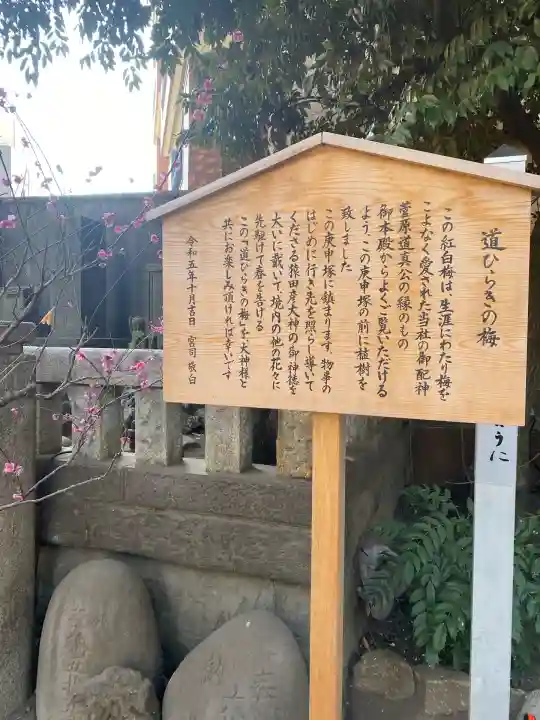 道ひらきの梅
この紅白梅は、生涯にわたり梅を
こよなく愛された当社の御配神
菅原道真公の縁のもの
御本殿からよくご覧いただける
よう、この庚申塚の前に植樹を
致しました
この庚申塚に鎮まります、物事の
はじめに行き先を照らし導いて
くださる猿田彦大神の御神徳を
大いに戴いて、境内の他の花々に
先駆けて春を告げる
この『道ひらきの梅』を、大神様と
共にお楽しみ頂ければ幸いです
令和五年十月吉日 宮司 敬白
うに